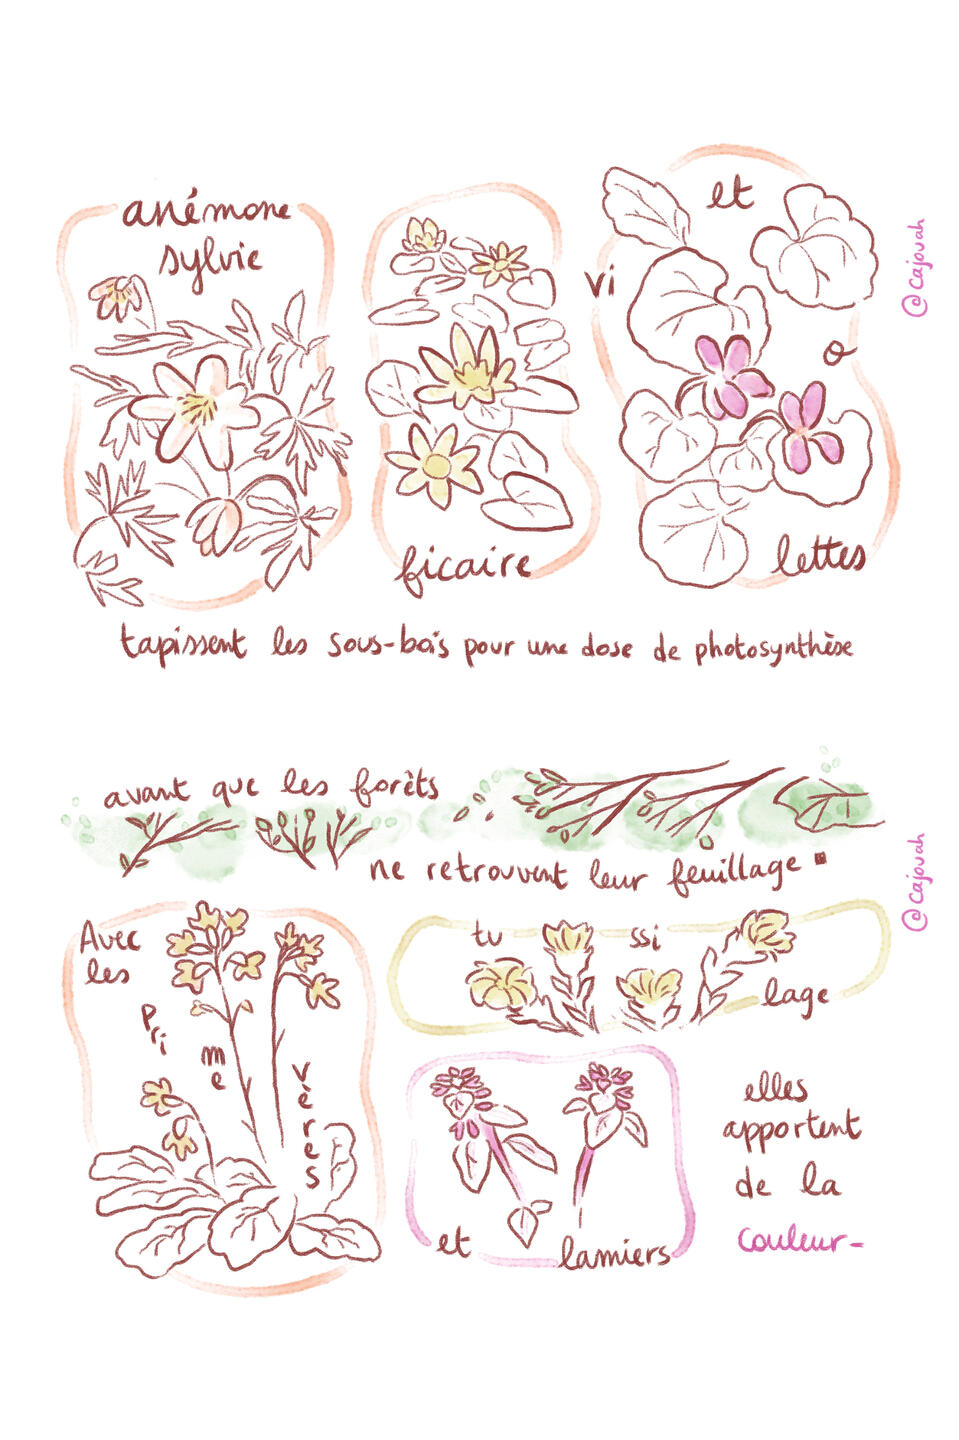 anémone
sylvie
ficaire
et
vi
o
lettes
@cajouah
tapissent les sous-bois pour une dose de photosynthèse
avant que les forêts
ne retrouvent leur feuillage
@cajouah
Avec
les
pri
me
vères
tu
ssi
lage
et
lamiers
elles
apportent
de la
couleur-